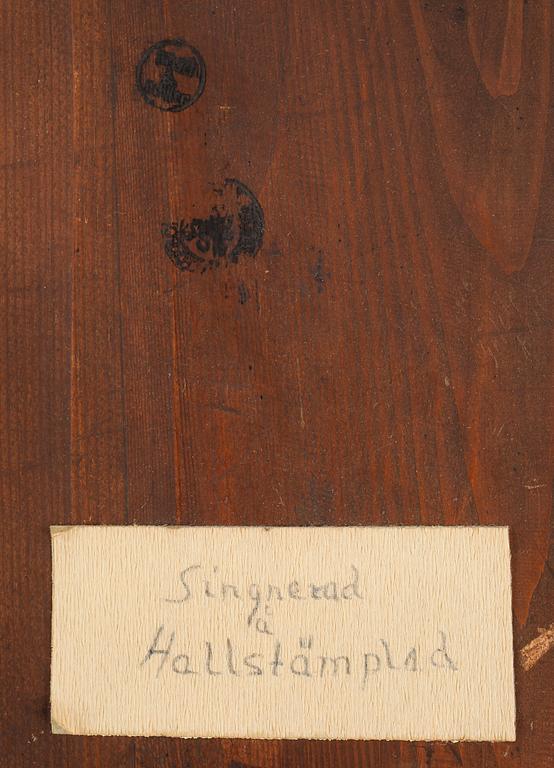 Singnerad
å
Hallstämplad